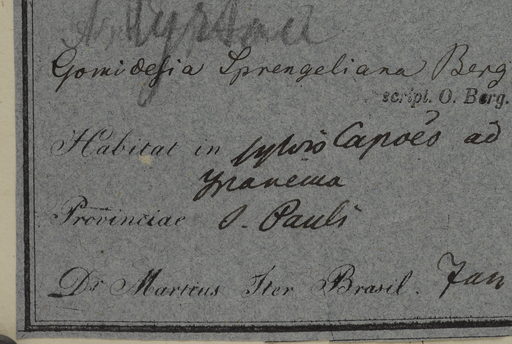 Myrtac
Gomidesia Sprengeliana Berg
script. O. Berg.
Habitat in sylvis Capoês ad
Ypanema
Provinciae S. Pauli
Dr Martius Iter Brasil. Jan